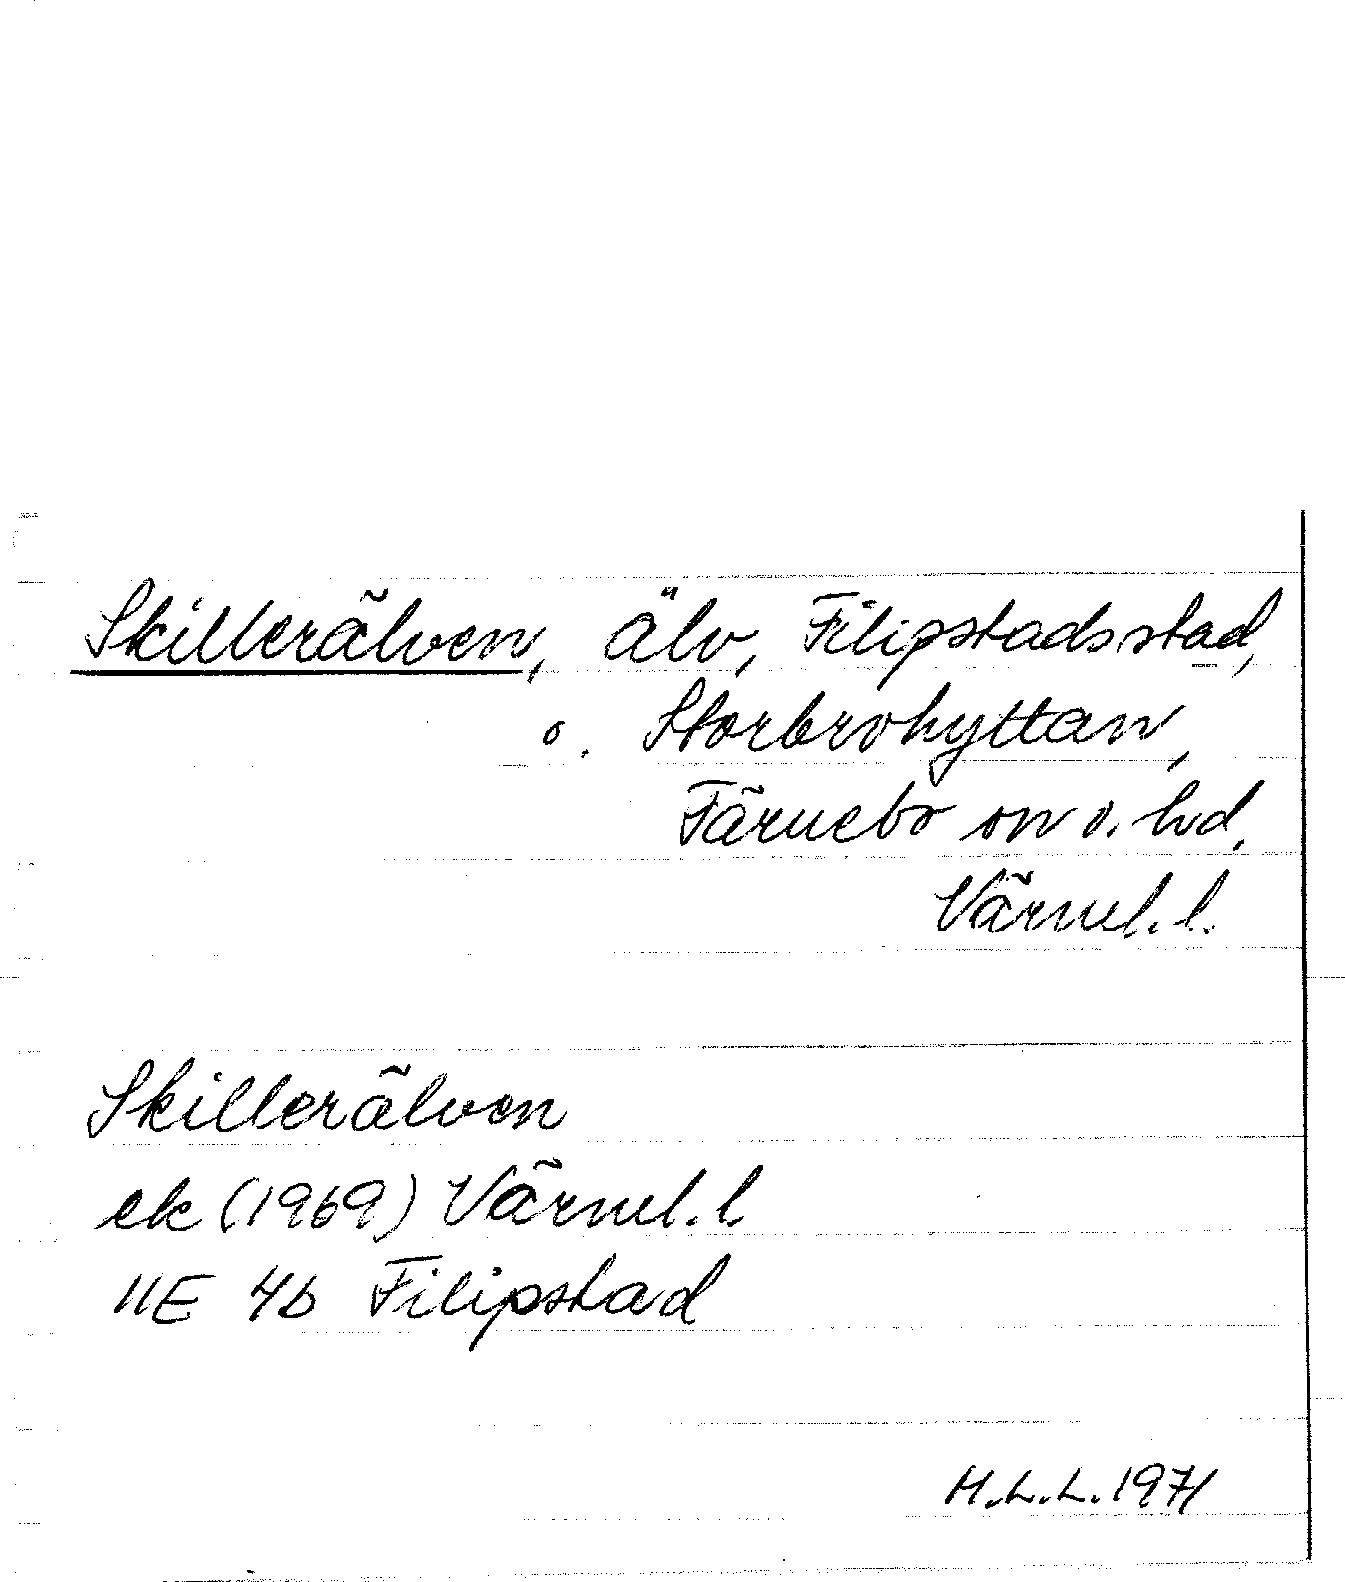 Skillerälven, älv, Filipstads stad,
o. Storbrohyttan,
Färnebo sn o. hd,
Värml. l.
Skillerälven
ek (1969) Värml. l.
11E 4b Filipstad
H.L.L. 1971